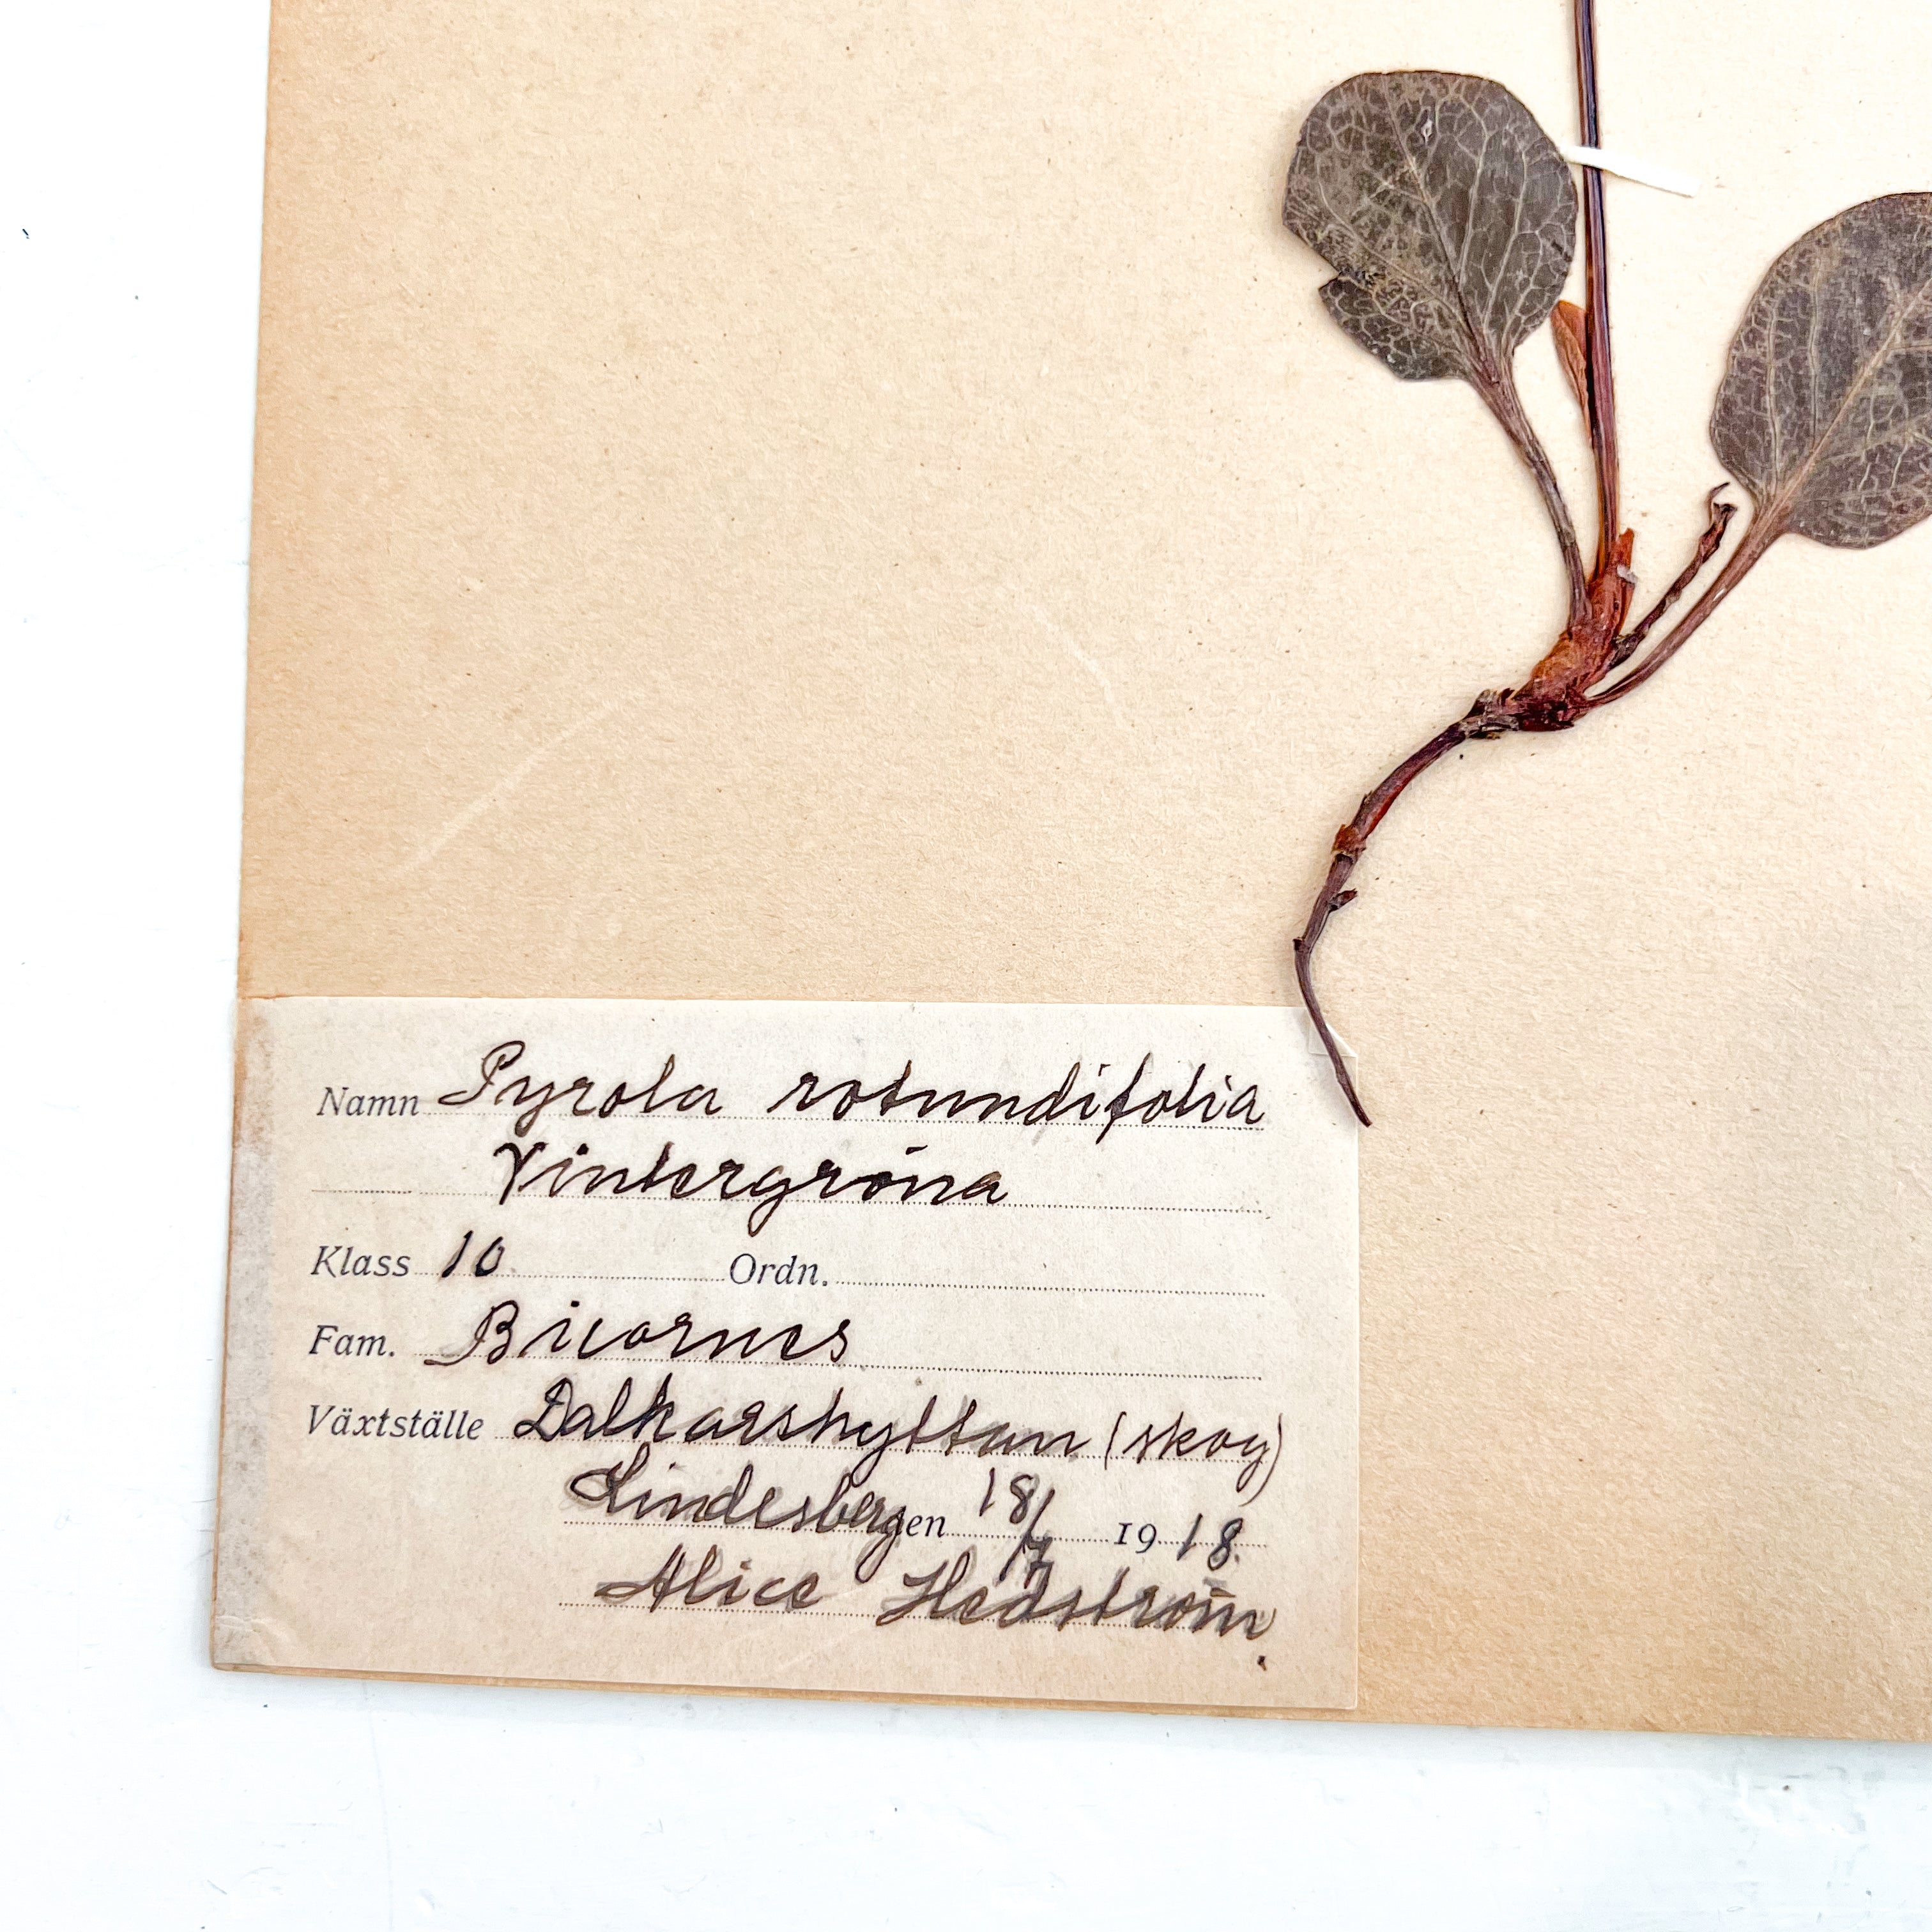 Namn Pyrola rotundifolia
Vintergröna
Klass 10 Ordn.
Fam. Bicornes
Växtställe Dalkarshyttan (skog)
Lindesberg en 18/7 1918.
Alice Hedström.